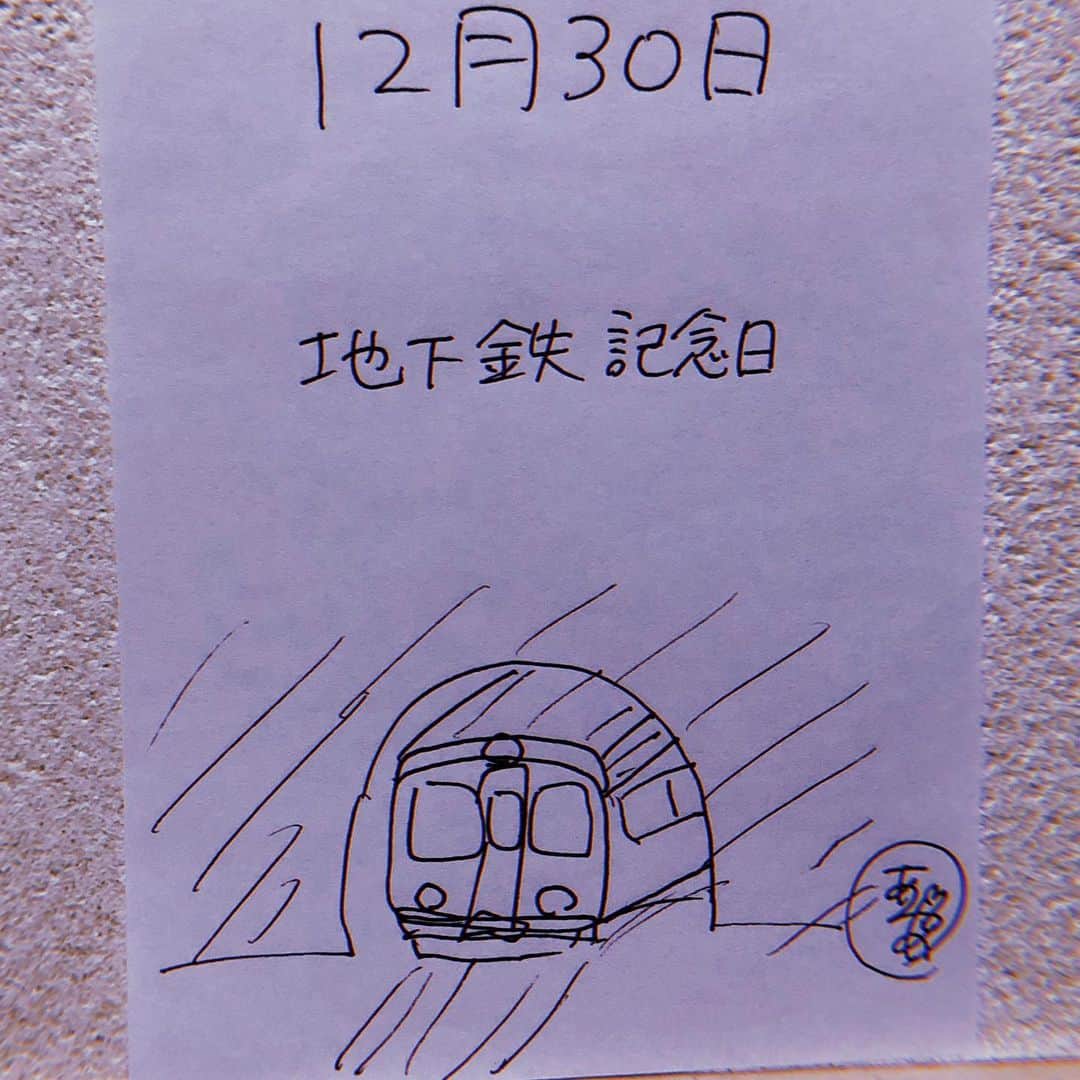 12月30日
地下鉄記念日